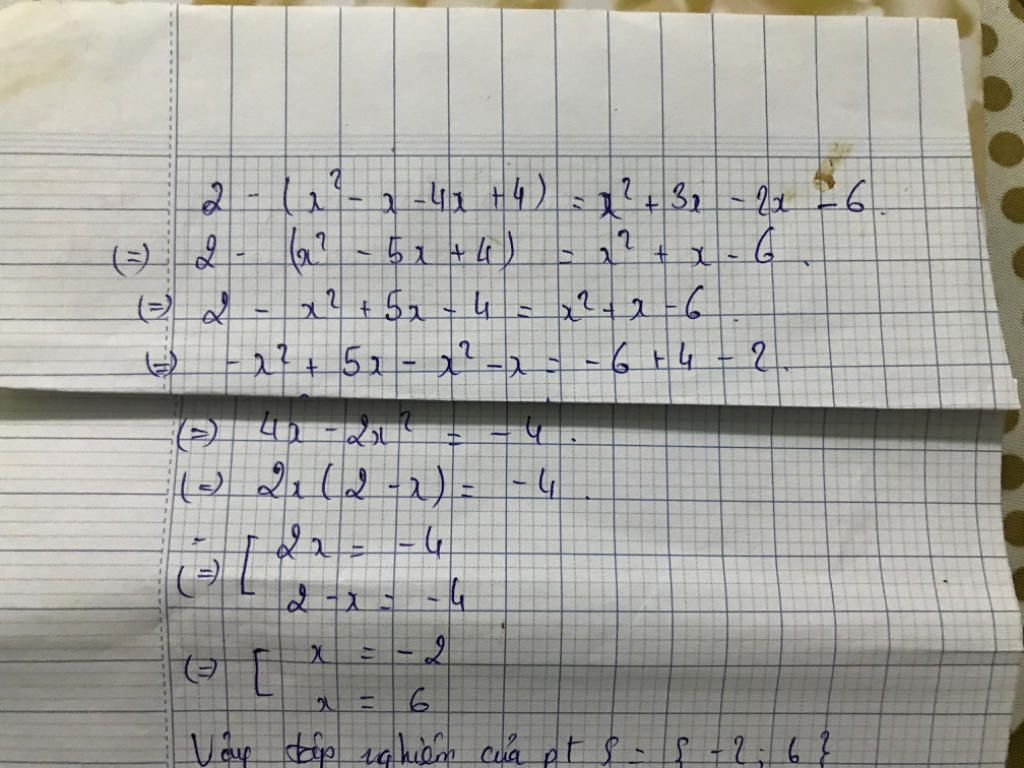 2 - (x² - x - 4x + 4) = x² + 3x - 2x - 6.
(=) 2 - (x² - 5x + 4) = x² + x - 6.
(=) 2 - x² + 5x - 4 = x² + x - 6.
(=) -x² + 5x - x² - x = -6 + 4 - 2.
(=) 4x - 2x² = -4.
(=) 2x(2 - x) = -4.
(=) [ 2x = -4
2 - x = -4
(=) [ x = -2
x = 6
Vậy tập nghiệm của pt S = { -2; 6 }